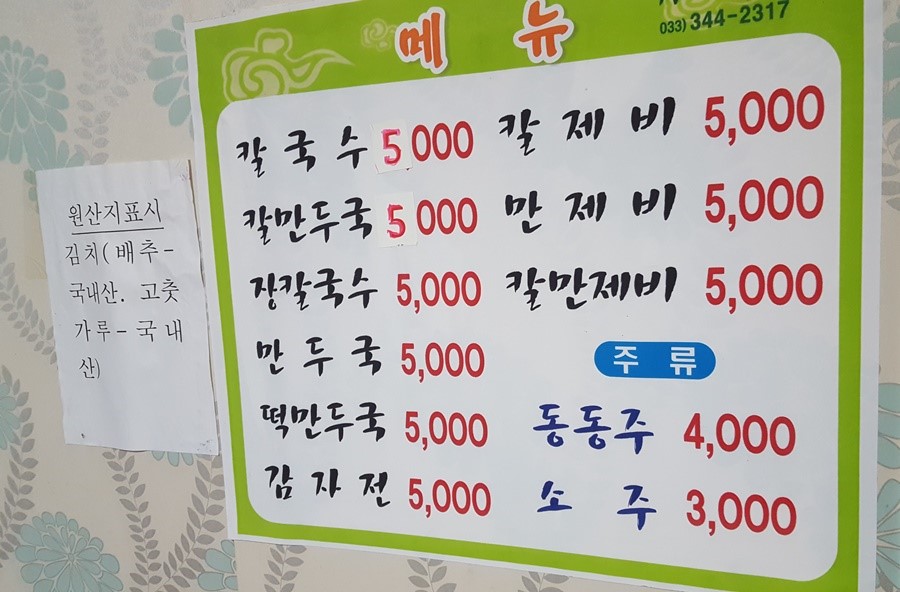 메 뉴
033) 344-2317
칼국수 5000
칼만두국 5000
장칼국수 5,000
만두국 5,000
떡만두국 5,000
감자전 5,000
칼제비 5,000
만제비 5,000
칼만제비 5,000
주류
동동주 4,000
소주 3,000
원산지표시
김치(배추-
국내산. 고춧
가루-국내
산)